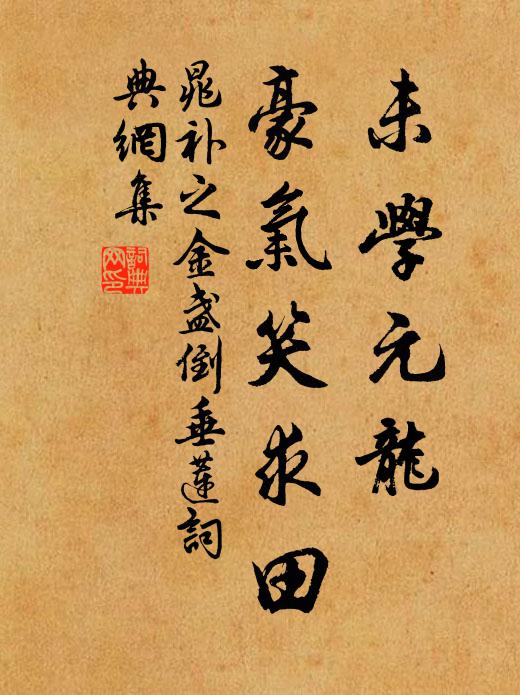 未學元龍
豪氣笑求田
晁补之金盏倒垂蓮詞
典網集
詞典
网印